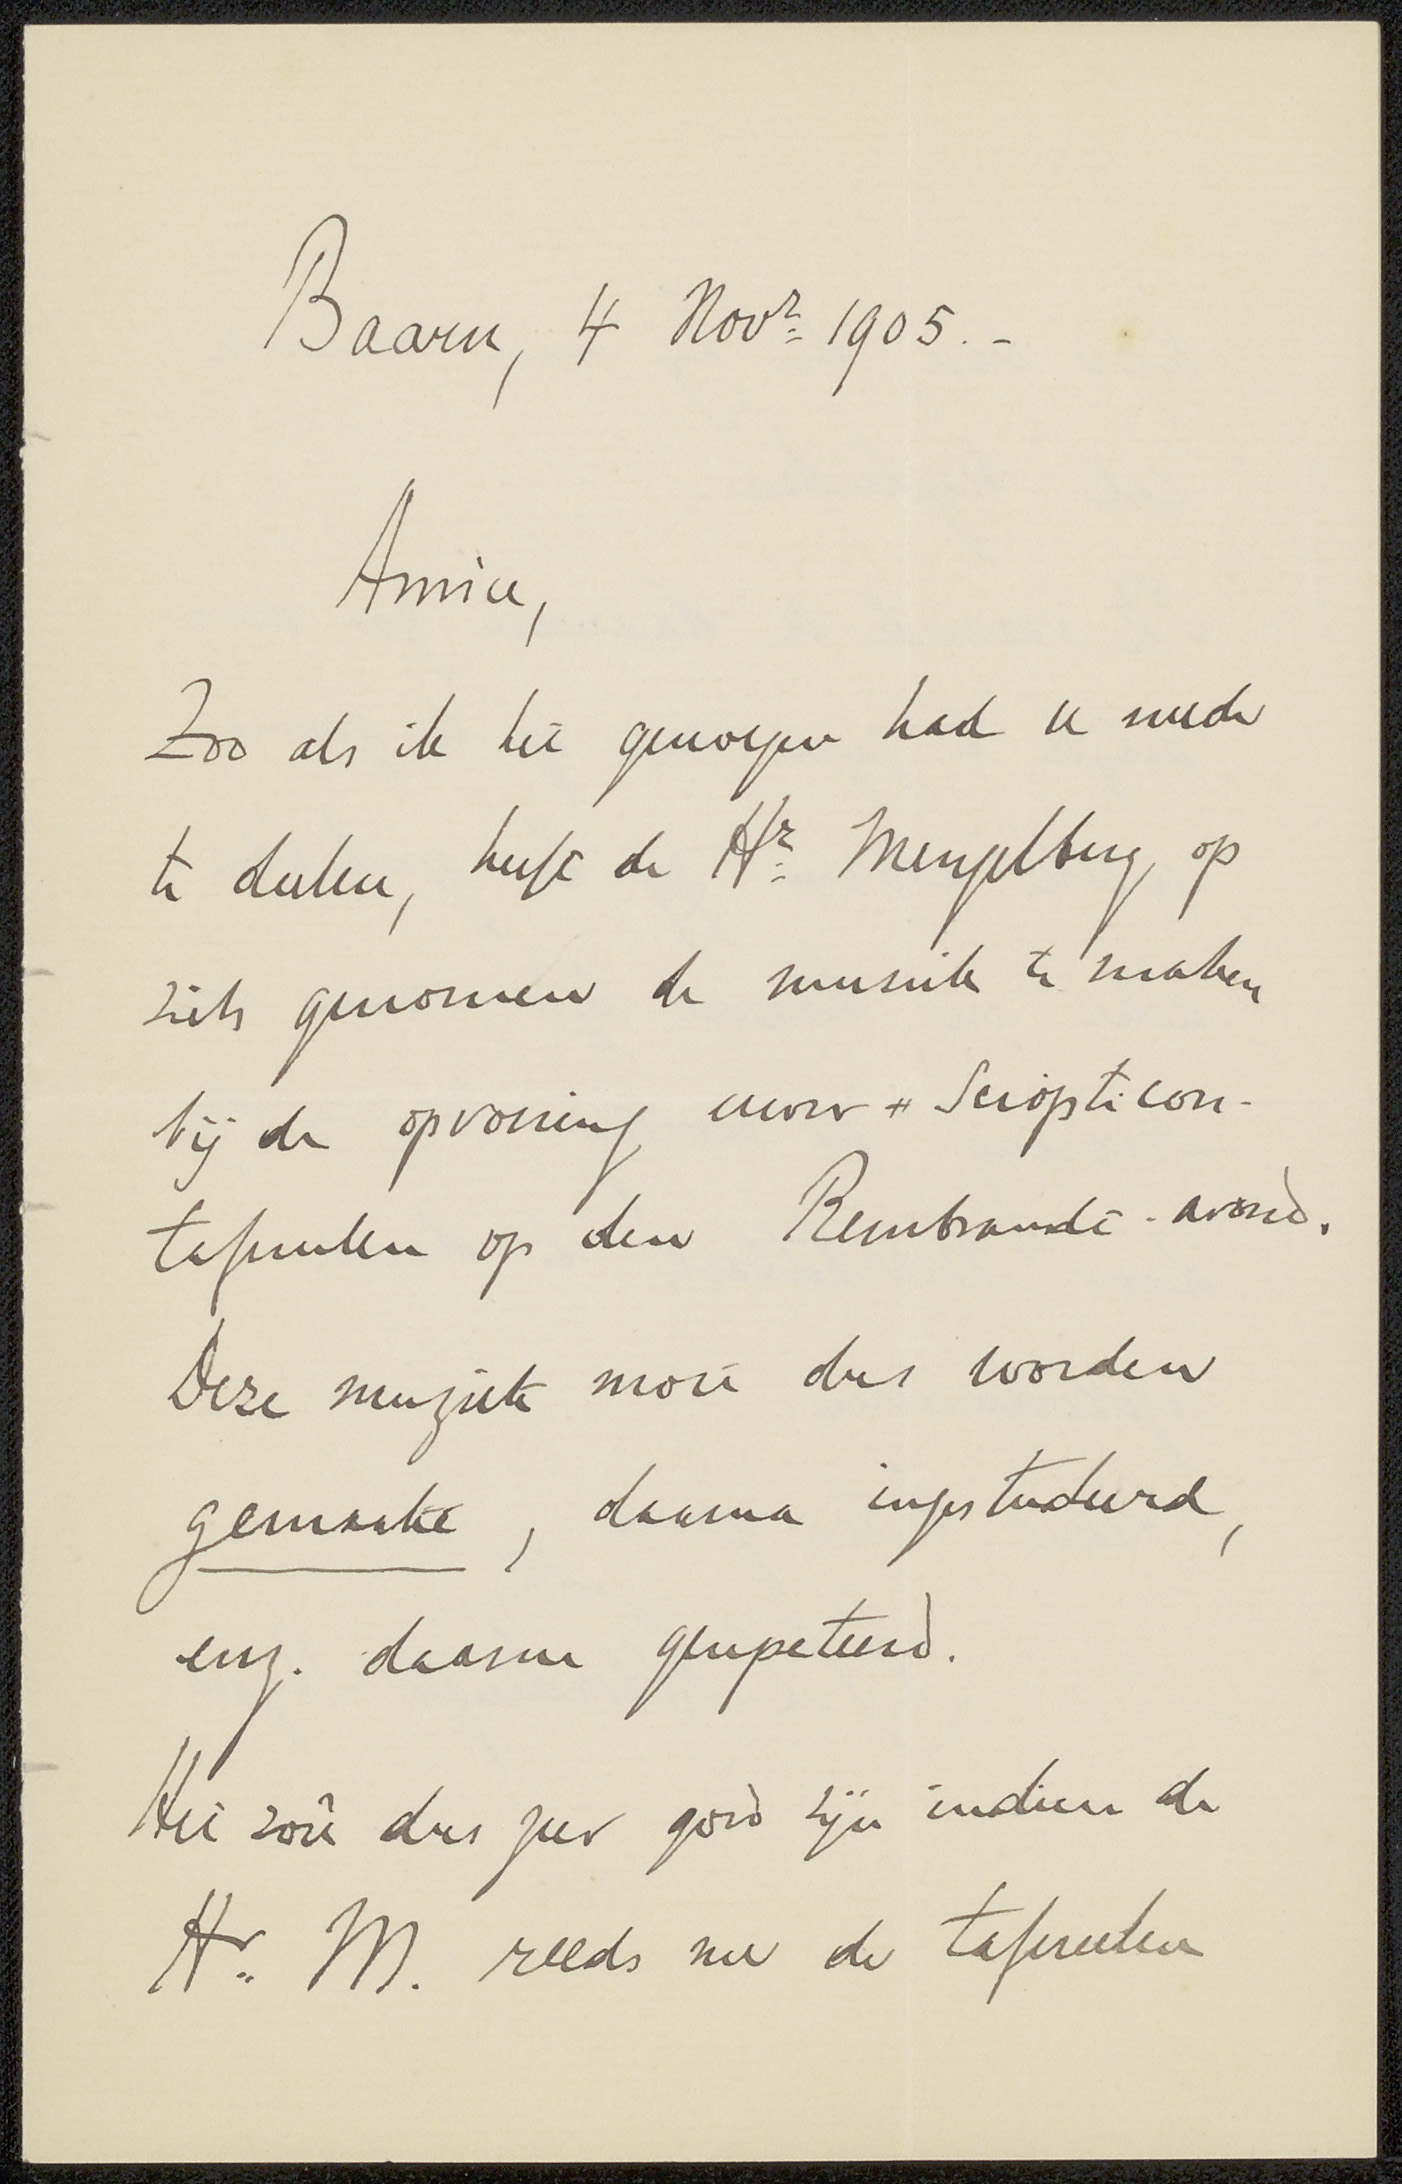 Baarn, 4 Novr 1905. -
Amice,
Zoo als ik het genoegen had U mede
te deelen, heeft de Hr Mengelberg op
zich genomen de muziek te maken
bij de opvoering uwer Sciopticon-
tafereelen op den Rembrandt-avond.
Deze muziek moet dus worden
gemaakt, daarna ingestudeerd,
enz. daarna gerepeteerd.
Het zoû dus zeer goed zijn indien de
Hr. M. reeds nu de tafereelen